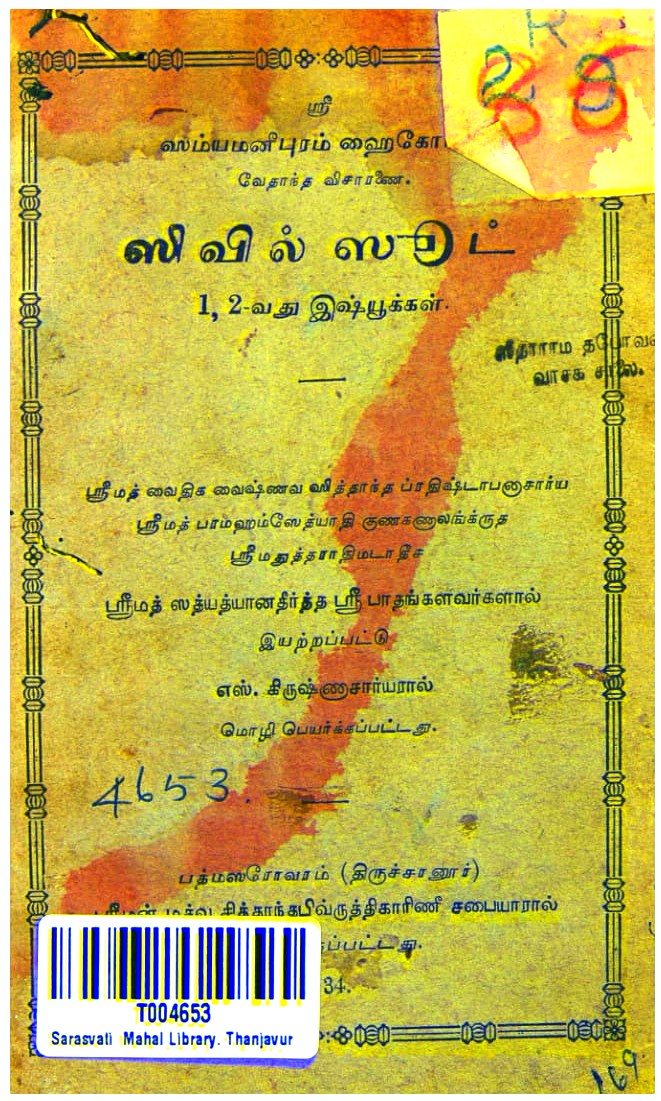 ஸ்ரீ
ஸம்யமனீபுரம் ஹைகோ
வேதாந்த விசாரணை.
ஸிவில் ஸூட்
1, 2-வது இஷ்யூக்கள்.
ஸீதாராம தபோவன
வாசக சாலை.
ஸ்ரீமத் வைதிக வைஷ்ணவ ஸித்தாந்த ப்ரதிஷ்டாபனாசார்ய
ஸ்ரீமத் பரம்ஹம்ஸேத்யாதி குணகணாலங்க்ருத
ஸ்ரீமதுத்தராதிமடாதீச
ஸ்ரீமத் ஸத்யத்யானதீர்த்த ஸ்ரீ பாதங்களவர்களால்
இயற்றப்பட்டு
எஸ். கிருஷ்ணாசார்யரால்
மொழி பெயர்க்கப்பட்டது.
4653.
பத்மஸரோவரம் (திருச்சானூர்)
ஸ்ரீமன் மத்வ சித்தாந்தபிவ்ருத்திகாரிணீ சபையாரால்
ப்பட்டது.
34.
T004653
Sarasvati Mahal Library. Thanjavur
169